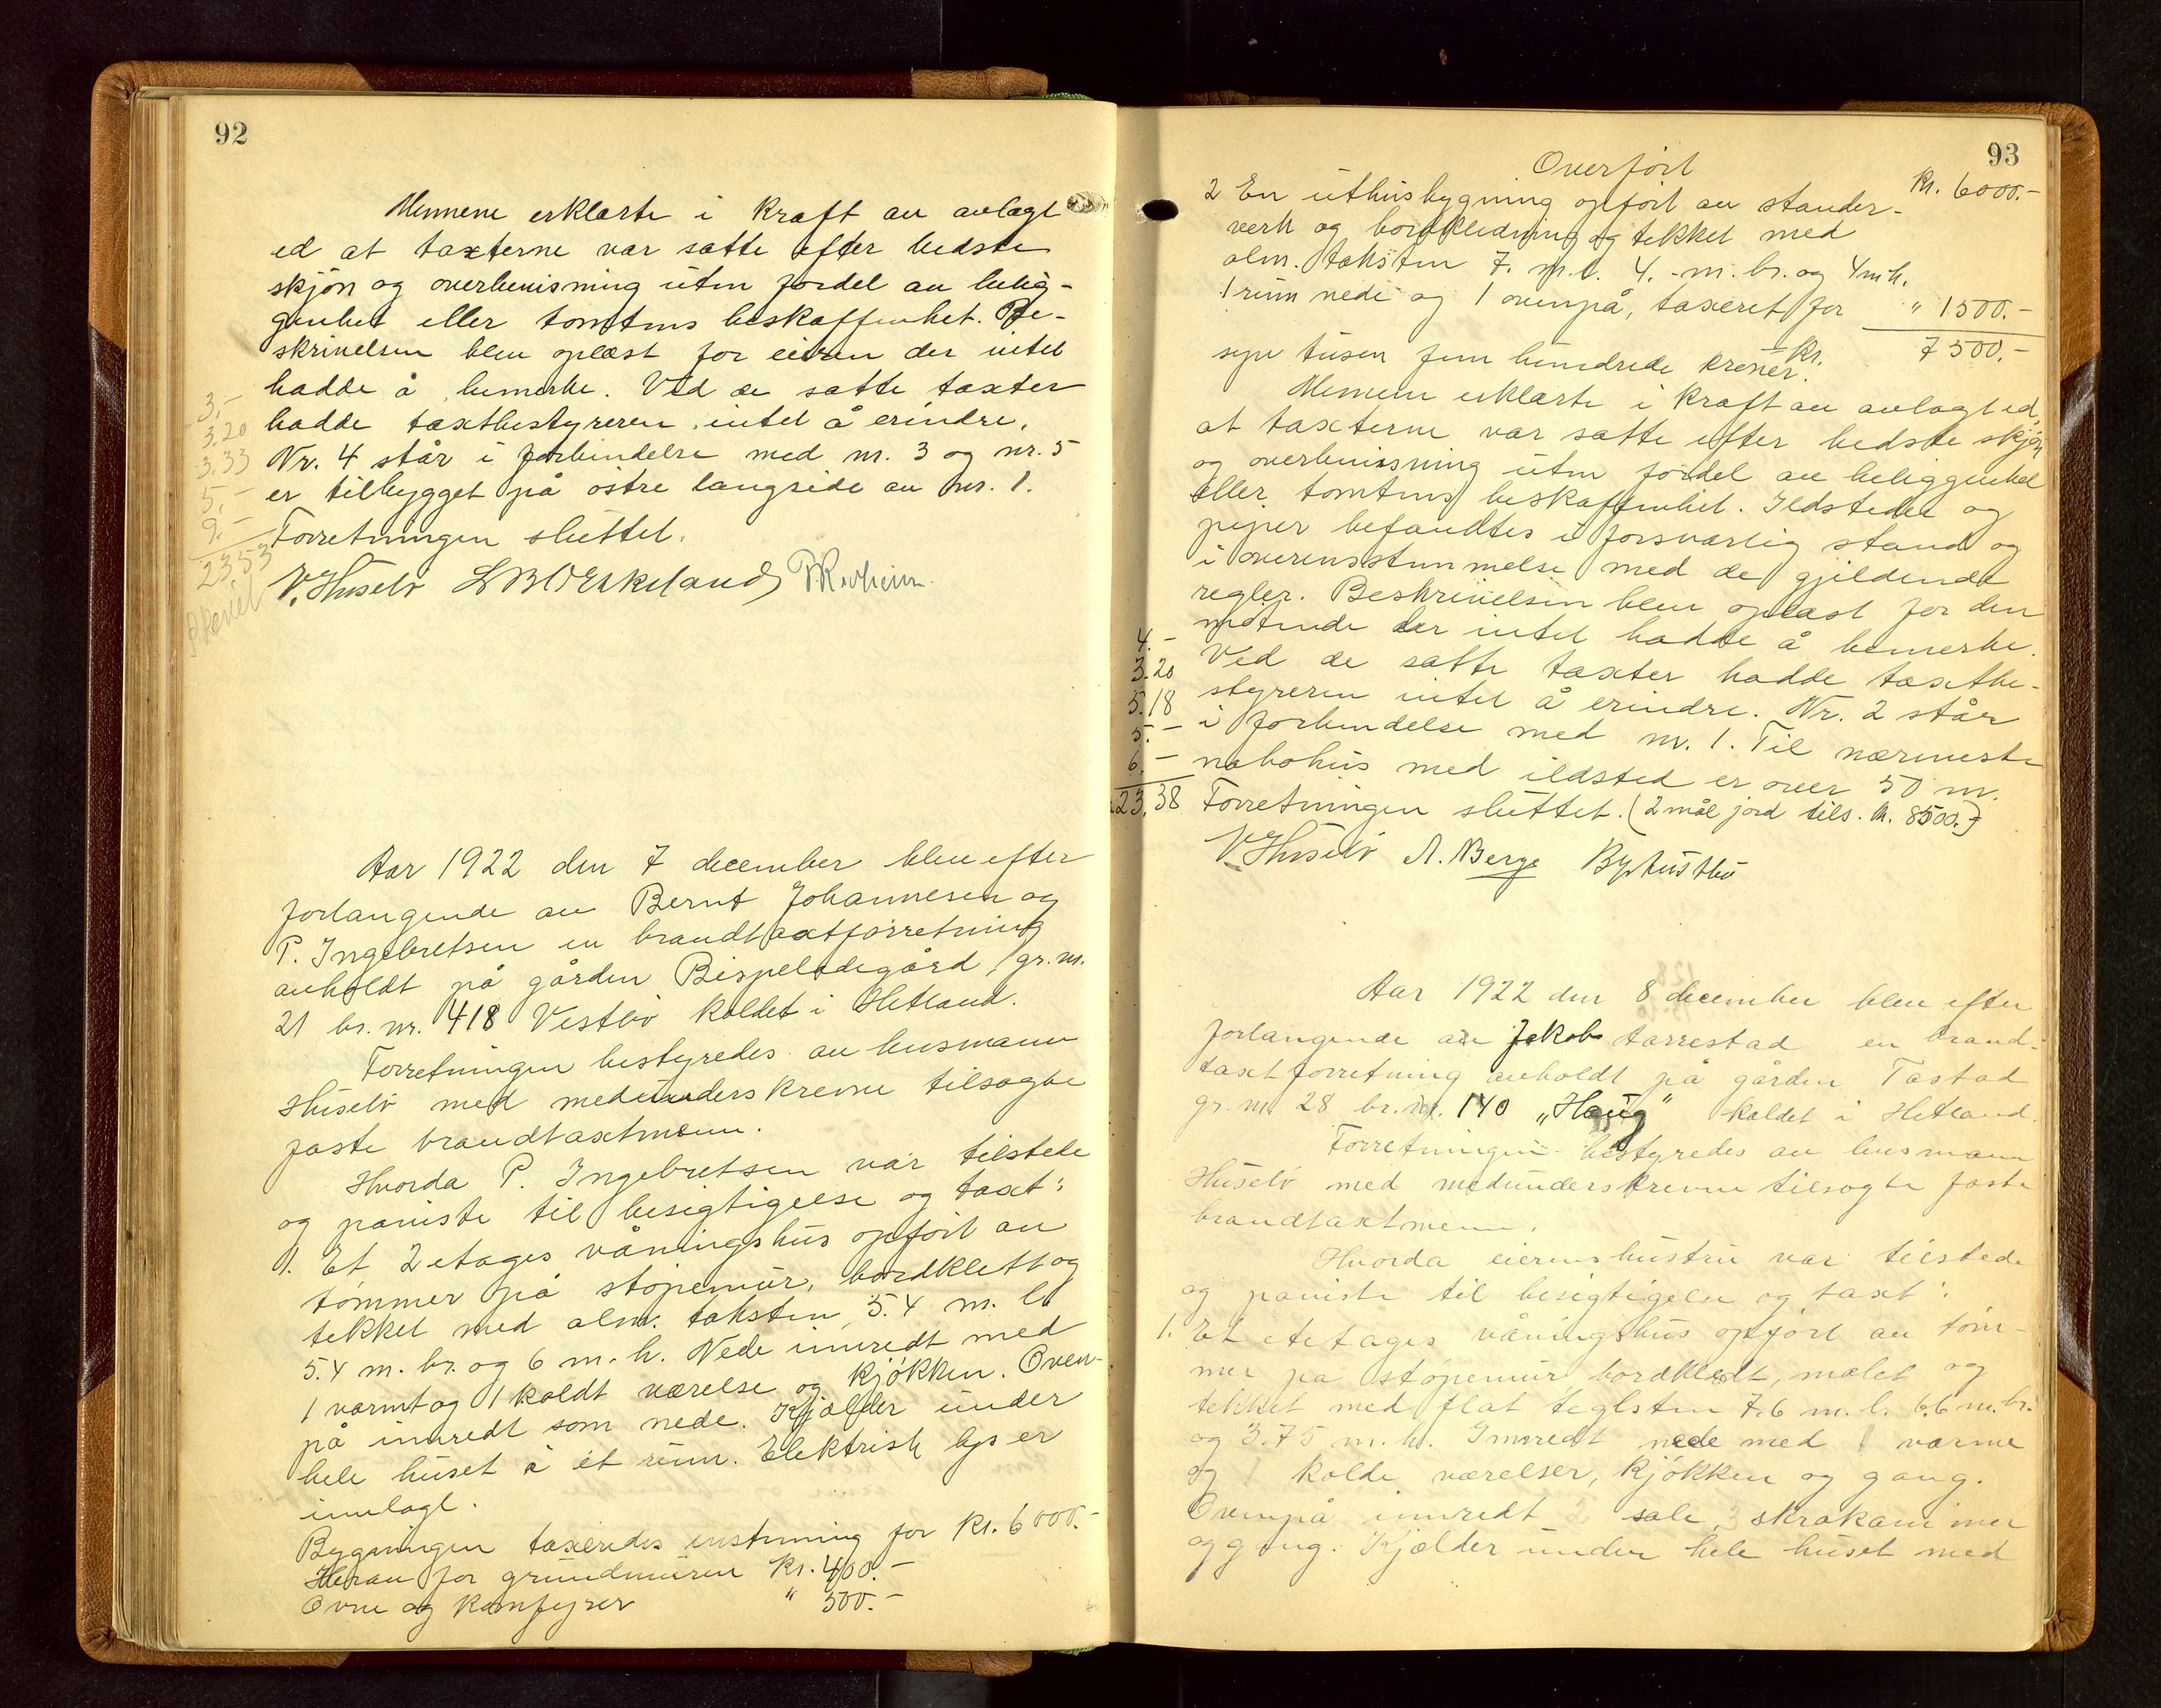 92
Mennene erklærte i kraft av avlagt
ed at taxterne var satte efter bedste
skjøn og overbevisning uten fordel av belig-
genhet eller tomtens beskaffenhet. Be-
skrivelsen blev oplæst for eieren der intet
hadde å bemerke. Ved de satte taxter
hadde taxtbestyreren intet å erindre.
Nr. 4 står i forbindelse med nr. 3 og nr. 5
er tilbygget på østre langside av nr. 1.
Forretningen sluttet.
V. Husebø
3.-
3.20
3.33
5.-
9.-
23.53
Aar 1922 den 7 december blev efter
forlangende av Bernt Johannesen og
P. Ingebretsen en brandtaxtforretning
avholdt på gården Bispeladegård, gr. nr.
21 br. nr. 418 Vestbø kaldet i Hetland.
Forretningen bestyredes av lensmann
Husebø med medunderskrevne tilsagte
faste brandtaxtmenn.
Hvorda P. Ingebretsen var tilstede
og påviste til besigtigelse og taxt:
1. Et 2 etages våningshus opført av
tømmer på støpemur, bordklett og
tekket med alm. taksten, 5.4 m. l.
5.4 m. br. og 6 m. h. Nede innredt med
1 varmt og 1 koldt værelse og kjøkken. Oven-
på innredt som nede. Kjælder under
hele huset à ét rum. Elektrisk lys er
innlagt.
Bygningen taxeredes enstemmig for kr. 6000.-
Herav for grundmuren kr. 400.-
Ovne og komfyrer " 500.-
93
Overført kr. 6000.-
2 En uthusbygning opført av stander-
verk og bordkledning og tekket med
alm. taksten 7. m. l. 4. - m. br. og 4 m h.
1 rum nede og 1 ovenpå, taxeret for " 1500.-
kr. 7500.-
syv tusen fem hundrede kroner.
Mennene erklærte i kraft av avlagt ed,
at taxterne var satte efter bedste skjøn
og overbevisning uten fordel av beliggenhet
eller tomtens beskaffenhet. Ildstede og
piper befandtes i forsvarlig stand og
i overensstemmelse med de gjeldende
regler. Beskrivelsen blev oplæst for den
møtende der intet hadde å bemerke.
Ved de satte taxter hadde taxtbe-
styreren intet å erindre. Nr. 2 står
i forbindelse med nr. 1. Til nærmeste
nabohus med ildsted er over 50 m.
Forretningen sluttet. (2 mål jord tils. kr. 8500.-)
4.-
3.20
5.18
5.-
6.-
23.38
V Husebø A. Berge
Aar 1922 den 8 december blev efter
forlangende av Jakob Harrestad en brand-
taxtforretning avholdt på gården Tastad
gr. nr. 28 br. nr. 140 „Haug" kaldet i Hetland.
Forretningen bestyredes av lensmann
Husebø med medunderskrevne tilsagte faste
brandtaxtmenn.
Hvorda eierens hustru var tilstede
og påviste til besigtigelse og taxt:
1. Et etetages våningshus opført av tøm-
mer på støpemur bordklædt, malet og
tekket med flat teglsten 7.6 m. l. 6.6 m. br.
og 3.75 m. h. Innredt nede med 1 varme
og 1 kolde værelser, kjøkken og gang.
Ovenpå innredt 2 sale, 3 skråkammer
og gang. Kjælder under hele huset med